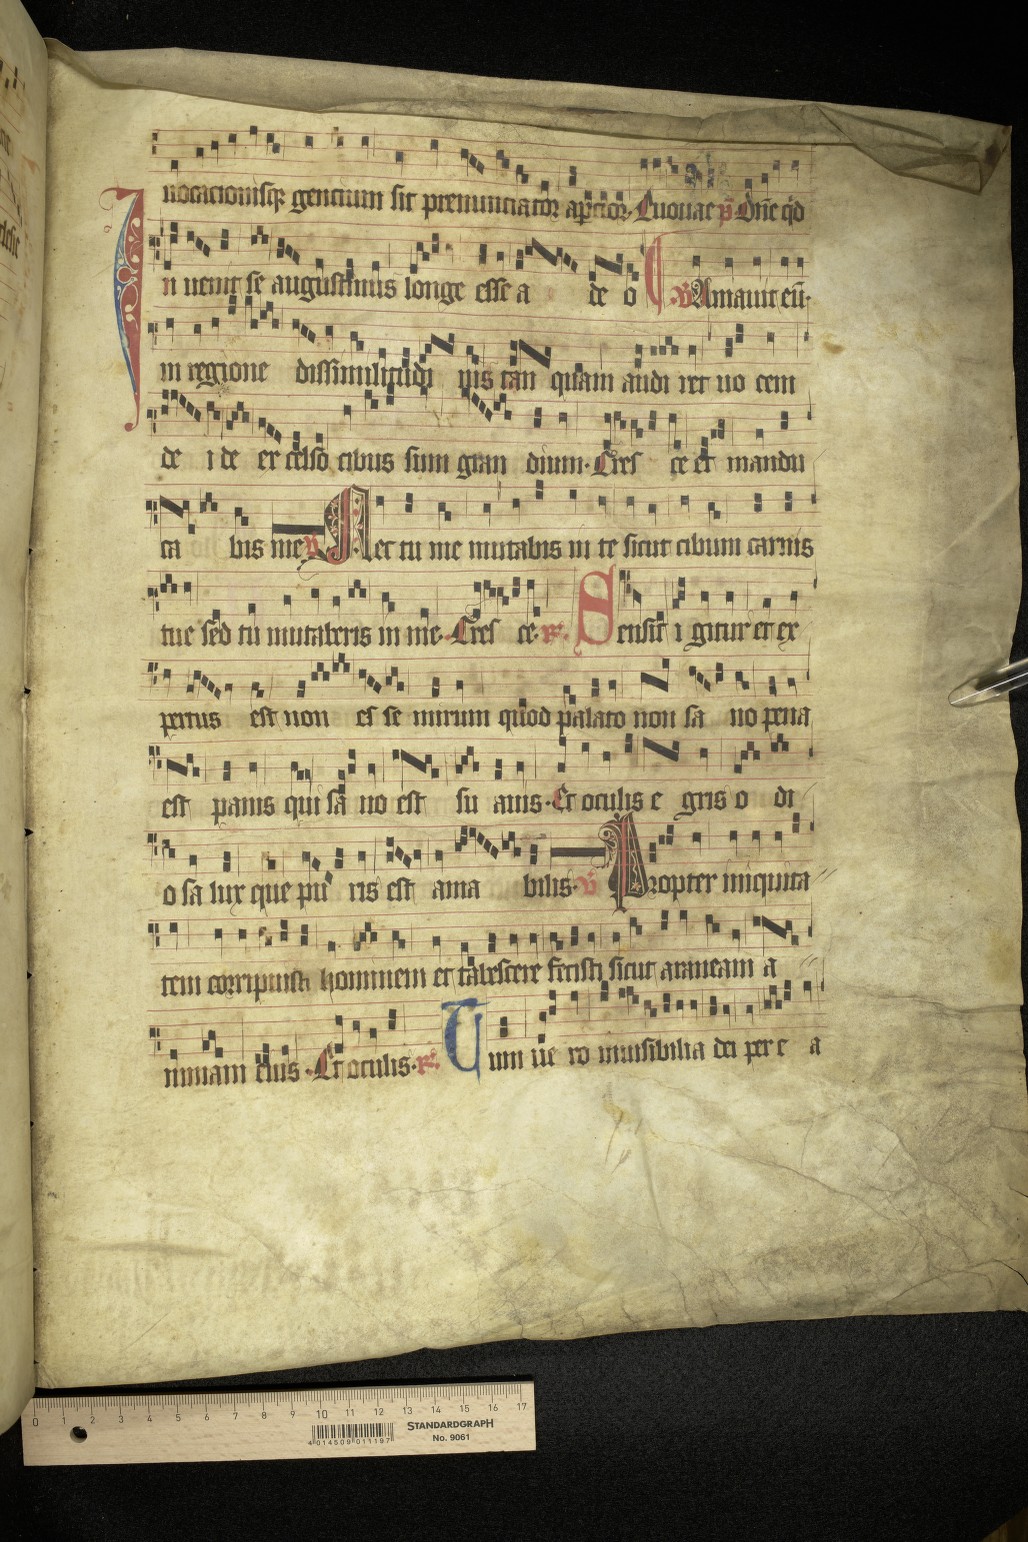 uocacionisq; gencium sit prenunciator apcior. Euouae p̄ Dn̄e qd
In uenit se augustinus longe esse a de o V̄ Amauit eū.
in regione dissimilitudi nis tan quam audi ret uo cem
de i de ex celso cibus sum gran dium. Cres ce et mandu
ca bis me V̄ Nec tu me mutabis in te sicut cibum carnis
tue sed tu mutaberis in me. Cres ce. R. Sensit i gitur et ex
pertus est non es se mirum quod palato non sa no pena
est panis qui sa no est su auis. Et oculis e gris o di
o sa lux que pu ris est ama bilis. V̄ Propter iniquita
tem corripuisti hominem et tabescere fecisti sicut araneam a
nimam eius. Et oculis. R. Cum ue ro inuisibilia dei per e a
0 1 2 3 4 5 6 7 8 9 10 11 12 13 14 15 16 17
4 014509 011197
STANDARDGRAPH
No. 9061